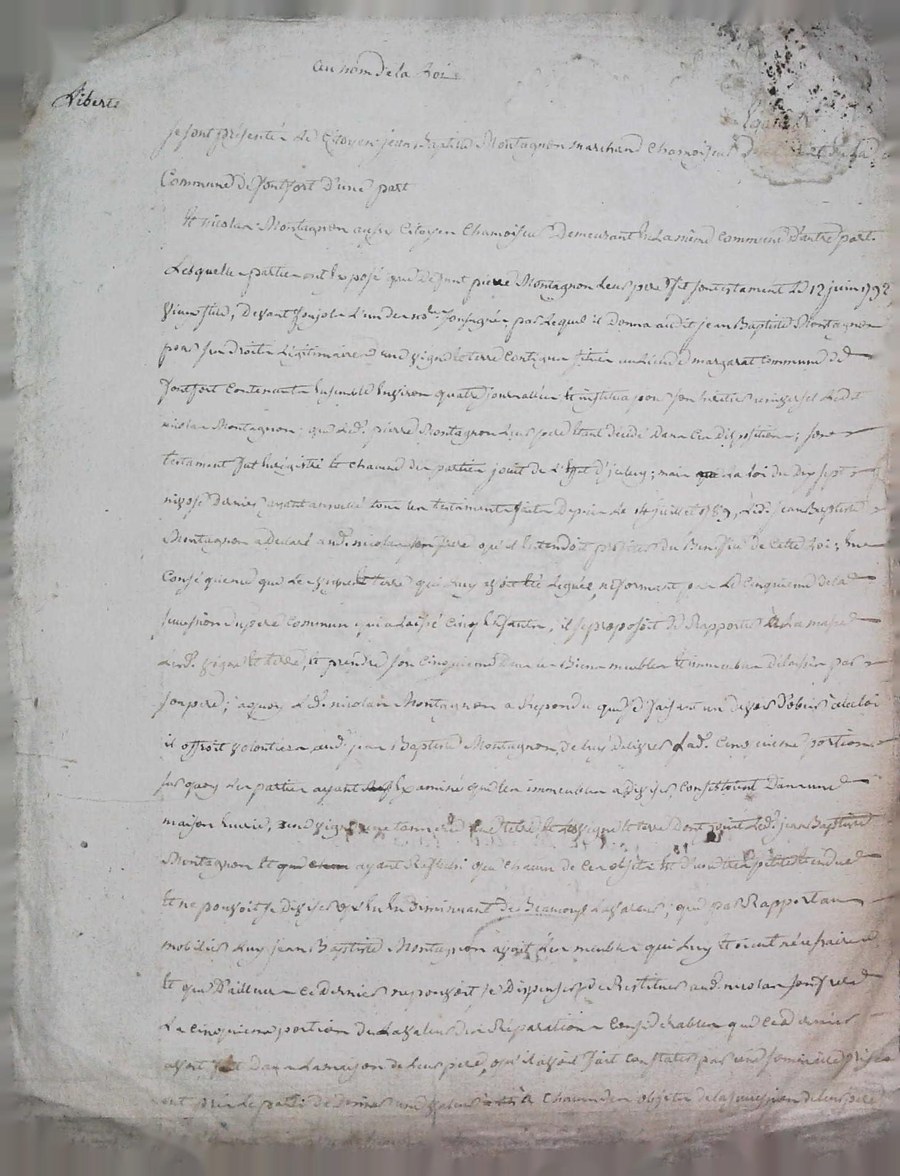 au nom de la Loi
Liberté
Egalité
se sont présentés Le Citoyen jean Baptiste Montagnon marchand chamoiseur de la
Commune de fontfort D'une part
Et nicolas Montagnon aussi Citoyen Chamoiseur Demeurant En La même Commune D'autre part.
Lesquelles parties ont Exposé que défunt pierre Montagnon Leur pere fit son testament Le 12 juin 1792
Vieux stile, Devant L'un des no.res soussignés par Lequel il Donna audit jean Baptiste Montagnon
pour ses Droits Légitimaires une vigne Et terre Contigus situés au Lieu de margarat Commune de
fontfort Contenants Ensemble Environ quatre journalées Et institua pour son héritier universel Ledit
nicolas Montagnon; que Led. pierre Montagnon Leur pere Etant décédé Dans Ces Dispositions; son
testament fut Enregistré Et chacune des parties jouit de L'Effet d'iceluy; mais que La Loi du Dix sept
nivose Dernier ayant annullé tous Les testaments faits Depuis Le 14 juillet 1789, Led. jean Baptiste
Montagnon a Declaré aud. nicolas son frere qu'il Entendoit profiter du Benefice de Cette Loi; En
Conséquence que Les vigne Et terre qui Luy avoit Eté Leguée, ne formant pas Le Cinquieme de la
succession du pere Commun qui a Laissé Cinq Enfants, il se proposoit De Rapporter à La masse
Lesd. vigne Et terre, Et prendre son Cinquieme Dans Les Biens meubles Et immeubles délaissés par
son pere; a quoy Led. nicolas Montagnon a Répondu que se faisant un devoir D'obeir à la Loi
il offroit volontiers aud. jean Baptiste Montagnon, de Luy délivrer Lad. Cinquieme portion
sur quoy Les parties ayant Examiné que Les immeubles a diviser Consistoient Dans une
maison, une vigne, une terre Et Les vigne Et terre Dont jouit Led. jean Baptiste
Montagnon Et que ayant Réfléchi que chacun de Ces objets Est d'une tres petite Etendue
Et ne pouvoit se diviser qu'En En Diminuant de Beaucoup La valeur; que par Rapport au
mobilier Luy jean Baptiste Montagnon avoit Les meubles qui Luy Etoient nécessaires
Et que D'ailleurs Ce Dernier ne pouvoit se Dispenser de Restituer aud. nicolas son frere
La cinquieme portion de La valeur des Réparations Considérables que Ce dernier
avoit fait dans La maison de Leur pere, qu'il avoit fait Constater par une
ont pris Le parti de Donner une valeur à Chacun des objets de la succession de leur pere